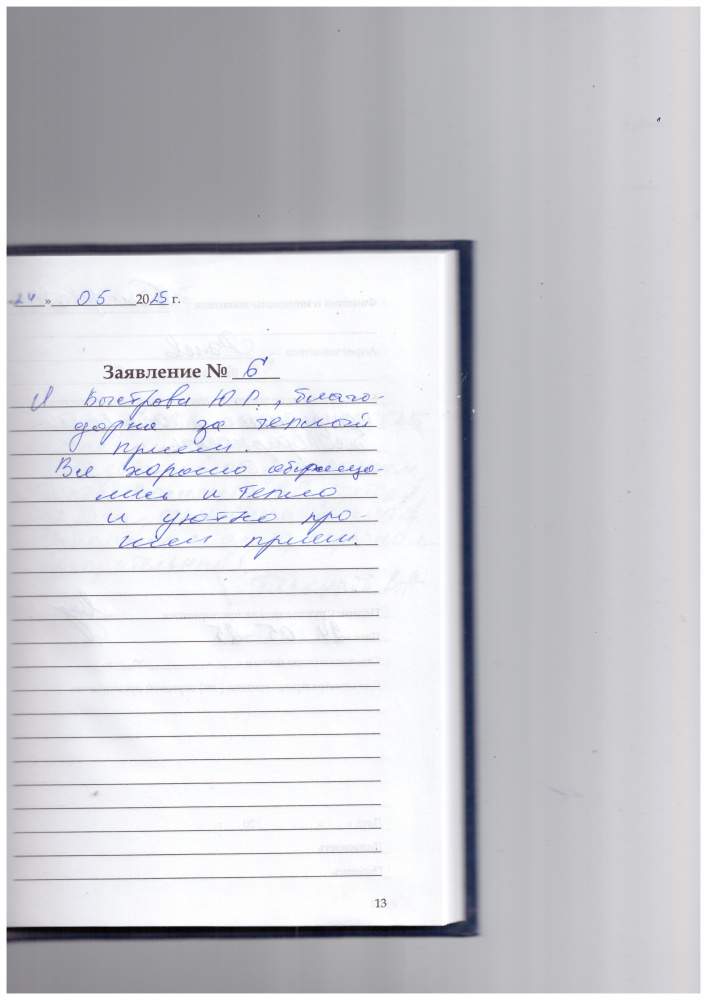 «24» 05 2025 г.
Заявление № 6
Я Быстрова Ю.Р., благо-
дарна за теплый
прием.
Все хорошо обращя-
лись и тепло
и уютно про-
шел прием.
13